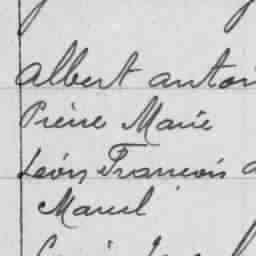 Albert Anton
Pierre Marie
Léon Francois
Marcel